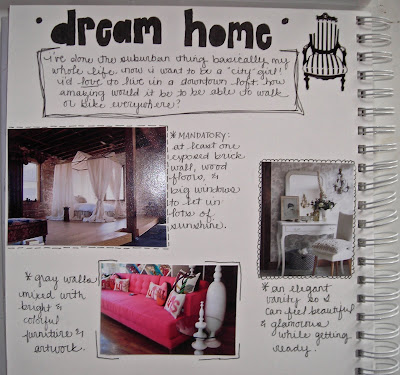 • dream home •
i've done the suburban thing basically my
whole life. now i want to be a "city" girl!
i'd love to live in a downtown loft. how
amazing would it be to be able to walk
or bike everywhere?
* MANDATORY:
at least one
exposed brick
wall, wood
floors, &
big windows
to let in
lots of
sunshine.
* gray walls
mixed with
bright &
colorful
furniture &
artwork.
* an elegant
vanity so i
can feel beautiful
& glamorous
while getting
ready.